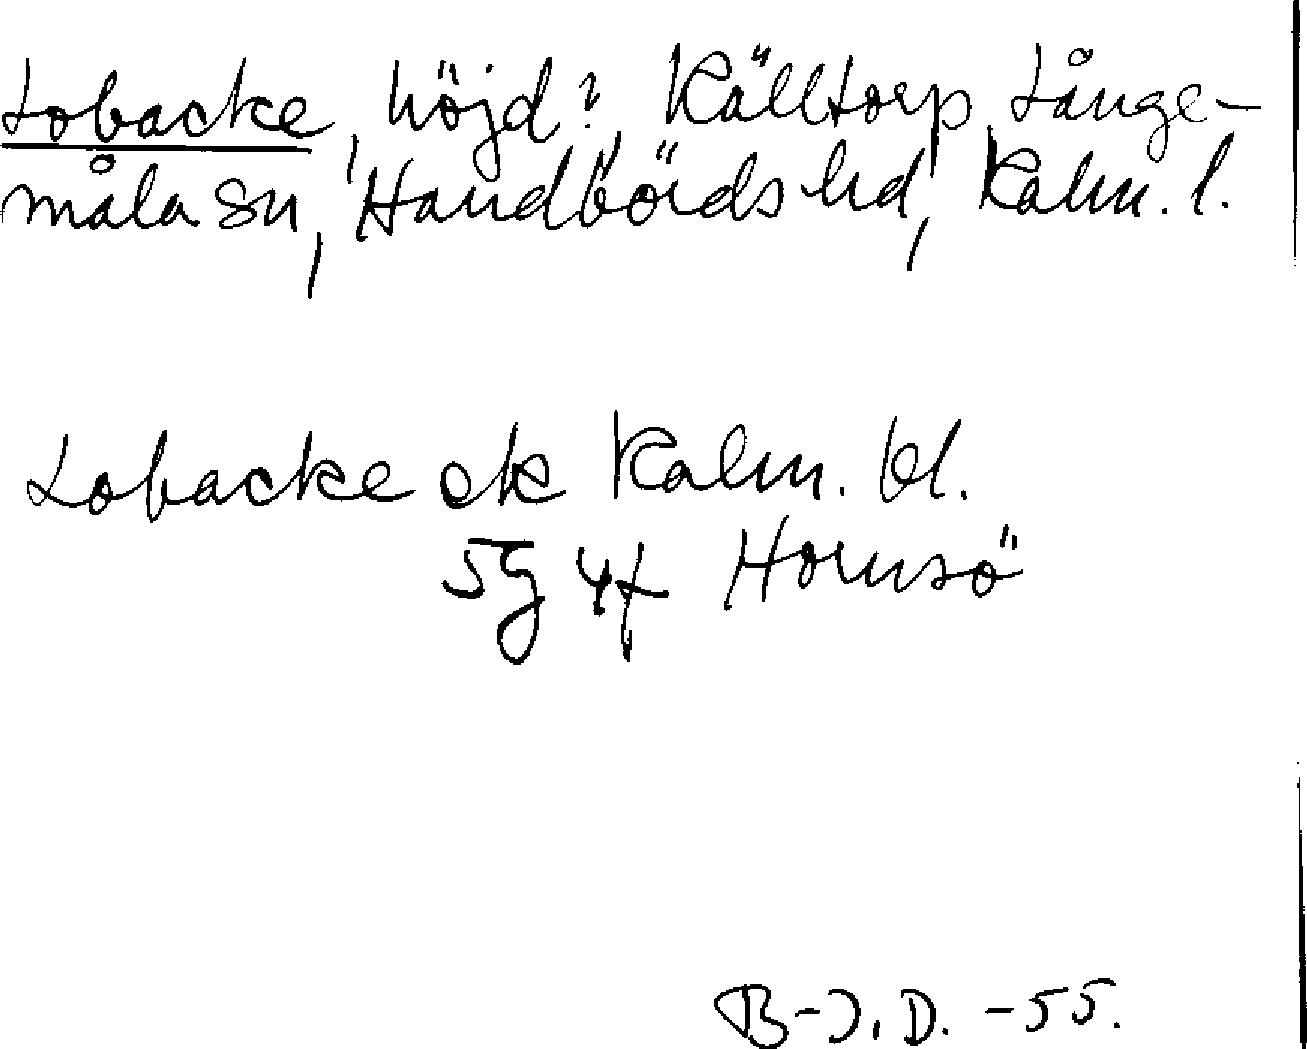 Lobacke, höjd?, Källtorp, Långe-
måla sn, Handbörds hd, Kalm. l.
Lobacke ek Kalm. bl.
5g 4f Hornsö
B-J. D. -55.